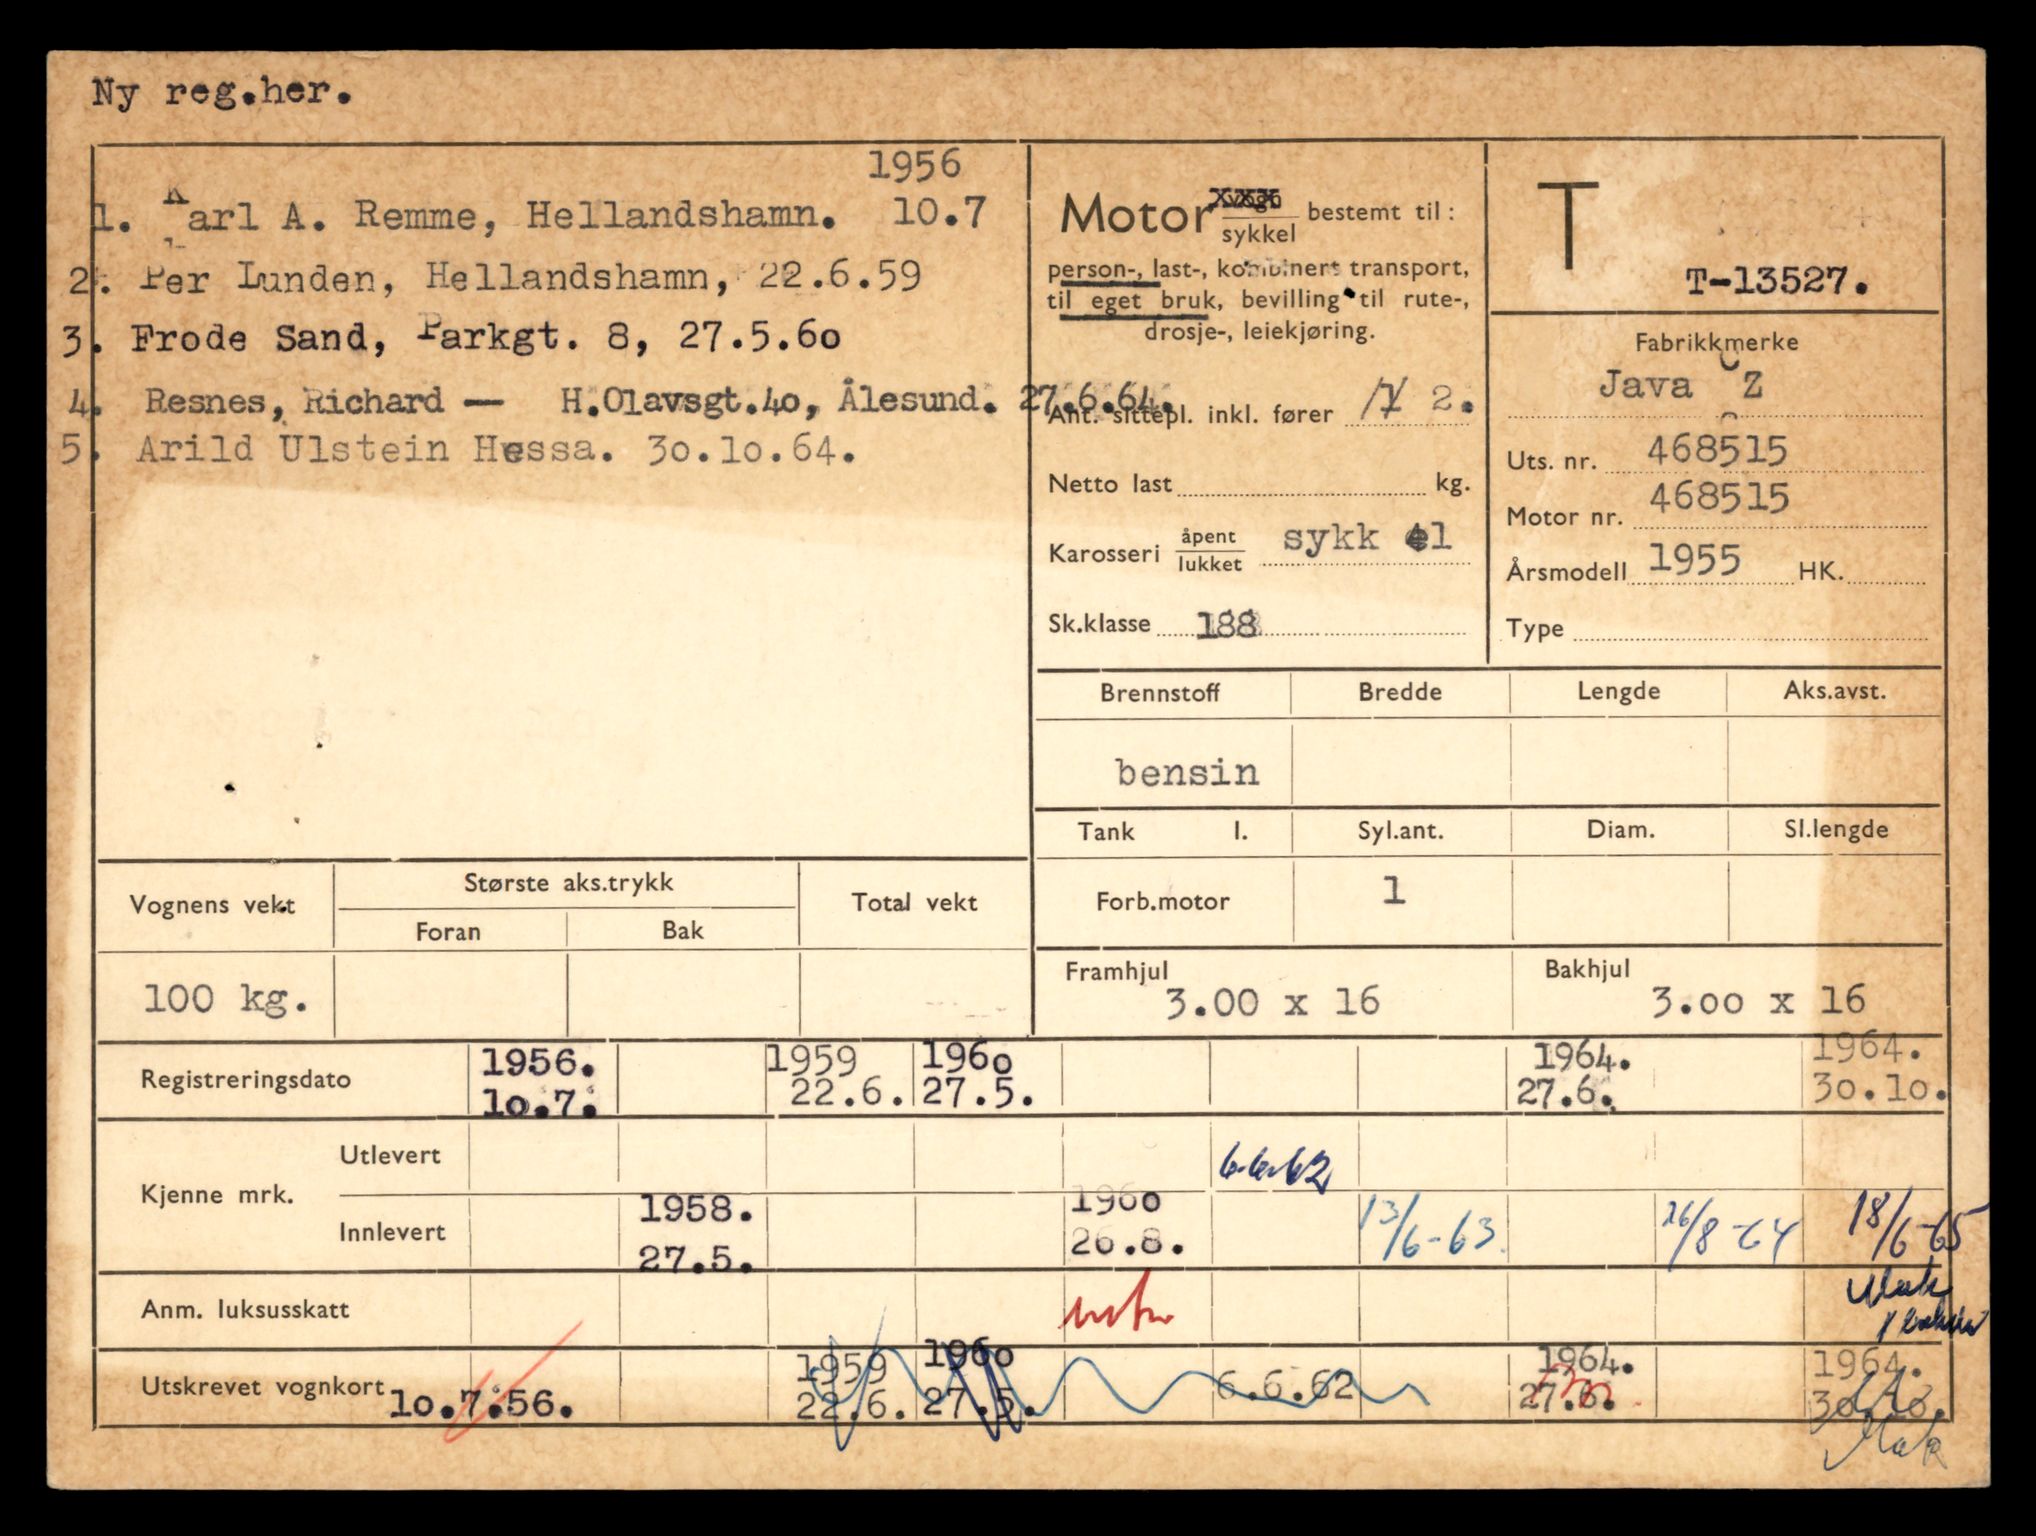 Ny reg.her.
1956
1. Karl A. Remme, Hellandshamn. 10.7
2. Per Lunden, Hellandshamn, 22.6.59
3. Frode Sand, Parkgt. 8, 27.5.6o
4. Resnes, Richard — H.Olavsgt.4o, Ålesund. 27.6.64.
5. Arild Ulstein Hessa. 3o.1o.64.
Motor vogn sykkel bestemt til:
person-, last-, kombinert transport,
til eget bruk, bevilling til rute-,
drosje-, leiekjøring.
Ant. sittepl. inkl. fører 2.
Netto last kg.
Karosseri åpent lukket sykkel
Sk.klasse 188
T
T-13527.
Fabrikkmerke
Java CZ
Uts. nr. 468515
Motor nr. 468515
Årsmodell 1955 HK.
Type
Brennstoff Bredde Lengde Aks.avst.
bensin
Tank l. Syl.ant. Diam. Sl.lengde
Forb.motor 1
Framhjul Bakhjul
3.00 x 16 3.oo x 16
Vognens vekt Største aks.trykk Total vekt
Foran Bak
100 kg.
Registreringsdato 1956. 1959 196o 1964. 1964.
1o.7. 22.6. 27.5. 27.6. 3o.1o.
Kjenne mrk. Utlevert 6.6.62
Innlevert 1958. 196o 13/6-63 26/8-64 18/6-65
27.5. 26.8.
Anm. luksusskatt
Utskrevet vognkort 1o.7.56. 1959 196o 6.6.62 1964. 1964.
22.6. 27.5. 27.6. 3o.1o.
Mak